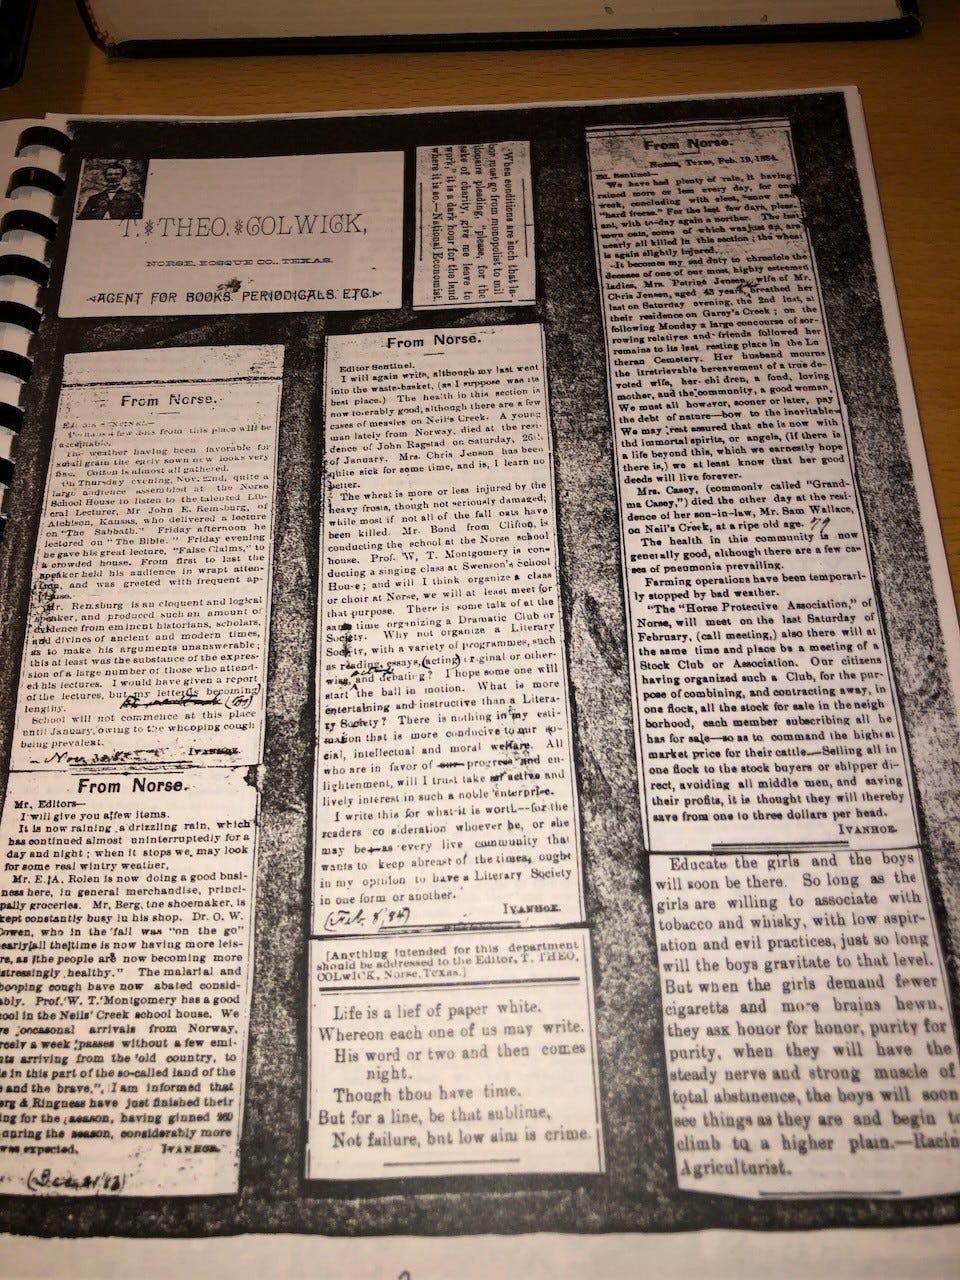 T. THEO. COLWICK,
NORSE, BOSQUE CO., TEXAS.
AGENT FOR BOOKS PERIODICALS ETC.
"When conditions are such that la-
bor must go from monopolist to mil
ionaire pleading, "please, for the
sake of charity, give me leave to
work," it is a dark hour for the land
where it is so.—National Economist.
From Norse.
a few dots from this place will be
acceptable.
The weather having been favorable for
small grain the early sown now looks very
fine. Cotton is almost all gathered.
On Thursday evening, Nov. 22nd, quite a
large audience assembled at the Norse
School House to listen to the talented Lib-
eral Lecturer, Mr John E. Remsburg, of
Atchison, Kansas, who delivered a lecture
on "The Sabbath." Friday afternoon he
lectured on "The Bible." Friday evening
he gave his great lecture, "False Claims," to
a crowded house. From first to last the
speaker held his audience in wrapt atten-
tion, and was greeted with frequent ap-
plause.
Mr. Remsburg is an eloquent and logical
speaker, and produced such an amount of
evidence from eminent historians, scholars,
and divines of ancient and modern times,
as to make his arguments unanswerable;
this at least was the substance of the expres-
sion of a large number of those who attend-
ed his lectures. I would have given a report
of the lectures, but my letter is becoming
lengthy.
School will not commence at this place
until January, owing to the whooping cough
being prevalent.
IVANHOE.
From Norse.
Mr. Editors—
I will give you a few items.
It is now raining a drizzling rain, which
has continued almost uninterruptedly for a
day and night; when it stops we may look
for some real wintry weather.
Mr. E. A. Rolen is now doing a good busi-
ness here, in general merchandise, princi-
pally groceries. Mr. Berg, tne shoemaker, is
kept constantly busy in his shop. Dr. O. W.
Cowen, who in the fall was "on the go"
nearly all the time is now having more leis-
re, as the people are now becoming more
stressingly healthy." The malarial and
hooping cough have now abated consid-
ably. Prof. W. T. Montgomery has a good
ool in the Neils' Creek school house. We
re occasonal arrivals from Norway,
rcely a week passes without a few emi-
nts arriving from the old country, to
e in this part of the so-called land of the
e and the brave." I am informed that
erg & Ringness have just finished their
ing for the season, having ginned 960
during the season, considerably more
was expected. IVANHOE.
(Dec. 21/83)
From Norse.
Editor Sentinel.
I will again write, although my last went
into the waste-basket, (as I suppose was its
best place.) The health in this section is
now tolerably good, although there are a few
cases of measles on Neil's Creek. A young
man lately from Norway, died at the resi-
dence of John Ragstad on Saturday, 26th
of January. Mrs. Chris Jenson has been
quite sick for some time, and is, I learn no
better.
The wheat is more or less injured by the
heavy frosts, though not seriously damaged;
while most if not all of the fall oats have
been killed. Mr. Bond from Clifton, is
conducting the school at the Norse school
house. Prof. W. T. Montgomery is con-
ducting a singing class at Swenson's School
House; and will I think organize a class
or choir at Norse, we will at least meet for
that purpose. There is some talk of at the
same time organizing a Dramatic Club or
Society. Why not organize a Literary
Society, with a variety of programmes, such
as reading, essays, (acting) original or other-
wise, and debating? I hope some one will
start the ball in motion. What is more
entertaining and instructive than a Litera-
ry Society? There is nothing in my esti-
mation that is more conducive to our so-
cial, intellectual and moral welfare. All
who are in favor of our progress and en-
lightenment, will I trust take an active and
lively interest in such a noble enterprise.
I write this for what it is worth—for the
readers co sideration whoever he, or she
may be—as every live community that
wants to keep abreast of the times, ought
in my opinion to have a Literary Society
in one form or another.
(Feb. 8, 84) IVANHOE.
[Anything intended for this department
should be addressed to the Editor, T. THEO,
COLWICK, Norse, Texas.]
Life is a lief of paper white.
Whereon each one of us may write.
His word or two and then comes
night.
Though thou have time.
But for a line, be that sublime,
Not failure, bnt low aim is crime.
From Norse.
NORSE, Texas, Feb. 19, 1884.
Ed. Sentinel—
We have had plenty of rain, it having
rained more or less every day, for one
week, concluding with sleet, snow and
"hard freeze." For the last few days, pleas-
ant, with to-day again a norther. The last
sown oats, some of which was just up, are
nearly all killed in this section; the wheat
is again slightly injured.
It becomes my sad duty to chronicle the
decease of one of our most highly esteemed
ladies, Mrs. Patrine Jensen, wife of Mr.
Chris Jensen, aged 43 years, breathed her
last on Saturday evening, the 2nd inst, at
their residence on Garey's Creek; on the
following Monday a large concourse of sor-
rowing relatiyes and friends followed her
remains to its last resting place in the Lu
theran Cemetery. Her husband mourns
the irretrievable bereavement of a true de-
voted wife, her chi dren, a fond, loving
mother, and the community, a good woman.
We must all however, sooner or later, pay
the debt of nature—bow to the inevitable
We may rest assured that she is now with
thd immortal spirits, or angels, (if there is
a life beyond this, which we earnestly hope
there is,) we at least know that her good
deeds will live forever.
Mrs. Casey, (commonly called "Grand-
ma Casey,") died the other day at the resi-
dence of her son-in-law, Mr. Sam Wallace,
on Neil's Creek, at a ripe old age. 79
The health in this community is now
generally good, although there are a few ca-
ses of pneumonia prevailing.
Farming operations have been temporari-
ly stopped by bad weather.
"The "Horse Protective Association," of
Norse, will meet on the last Saturday of
February, (call meeting,) also there will at
the same time and place be a meeting of a
Stock Club or Association. Our citizens
having organized such a Club, for the pur-
pose of combining, and contracting away, in
one flock, all the stock for sale in the neigh
borhood, each member subscribing all he
has for sale—so as to command the highest
market price for their cattle—Selling all in
one flock to the stock buyers or shipper di-
rect, avoiding all middle men, and saving
their profits, it is thought they will thereby
save from one to three dollars per head.
IVANHOE.
Educate the girls and the boys
will soon be there. So long as the
girls are willing to associate with
tobacco and whisky, with low aspir-
ation and evil practices, just so long
will the boys gravitate to that level.
But when the girls demand fewer
cigaretts and more brains hewn,
they ask honor for honor, purity for
purity, when they will have the
steady nerve and strong muscle of
total abstinence, the boys will soon
see things as they are and begin to
climb to a higher plain.—Racin
Agriculturist.